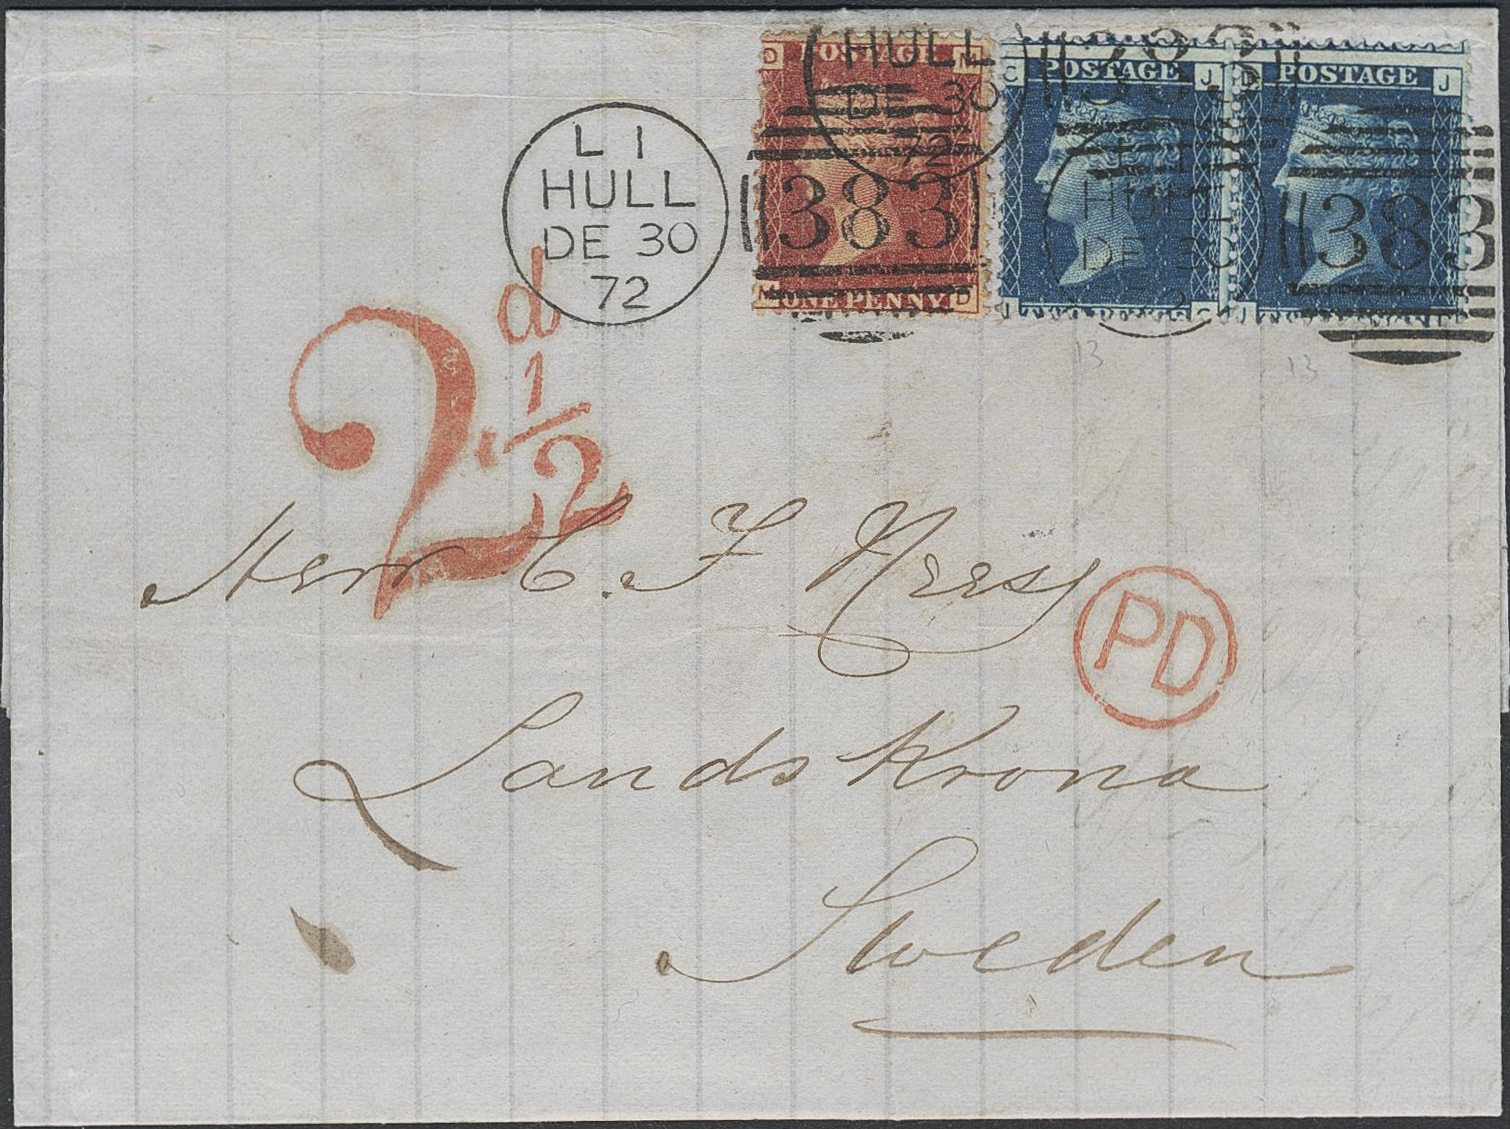 D POSTAGE M
383
M ONE PENNY D
HULL
DE 30
72
C POSTAGE J
D POSTAGE J
383
383
L 1
HULL
DE 30
72
J C
J
L 1
HULL
DE 30
72
13
13
2 d 1/2
Herr C. F.
PD
Landskrona
Sweden